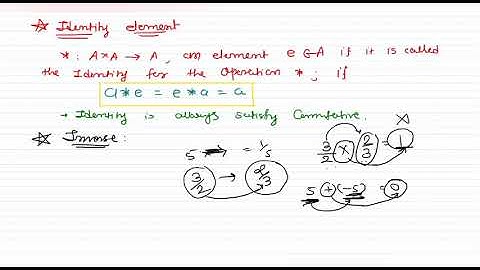 ☆ Identity element
* : A×A → A , an element e ∈ A if it is called
the Identity for the Operation * ; if
a * e = e * a = a
→ Identity is always satisfy Commutative.
☆ Inverse :
5 → = 1/5
3/2 → 2/3
3/2 × 2/3 = 1
5 + (-5) = 0